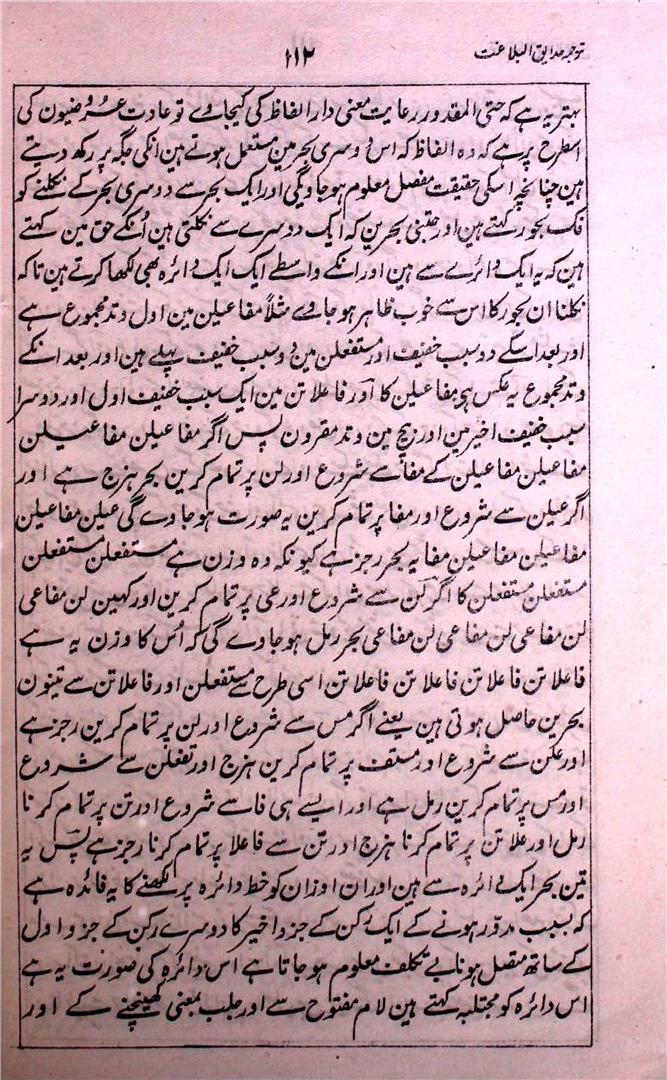 ترجمہ حدایق البلاغت
۱۱۲
بہتر یہ ہے کہ حتی المقدور رعایت معنی دار الفاظ کی کیجاوے تو عادت عروضیون کی
اسطرح پر ہے کہ وہ الفاظ کہ اس دوسری بحر مین مستعمل ہوتے ہین انکی جگہ پر رکھ دیتے
ہین چنانچہ اسکی حقیقت مفصل معلوم ہوجاویگی اور ایک بحر سے دوسری بحر کے نکلنے کو
فک بحور کہتے ہین اور جتنی بحرین کہ ایک دوسرے سے نکلتی ہین اُنکے حق مین کہتے
ہین کہ یہ ایک دائرے سے ہین اور انکے واسطے ایک ایک دائرہ بھی لکھا کرتے ہین تاکہ
نکلنا ان بحور کا اس سے خوب ظاہر ہوجاوے مثلاً مفاعیلن مین اول وتد مجموع ہے
اور بعد اسکے دو سبب خفیف اور مستفعلن مین دو سبب خفیف پہلے ہین اور بعد انکے
وتد مجموع یہ عکس ہی مفاعیلن کا اور فاعلاتن مین ایک سبب خفیف اول اور دوسرا
سبب خفیف اخیر مین اور بیچ مین وتد مقرون پس اگر مفاعیلن مفاعیلن
مفاعیلن مفاعیلن کے مفا سے شروع اور لن پر تمام کرین بحر ہزج ہے اور
اگر عیلن سے شروع اور مفا پر تمام کرین یہ صورت ہوجاوے گی عیلن مفاعیلن
مفاعیلن مفاعیلن مفا یہ بحر رجز ہے کیونکہ وہ وزن ہے مستفعلن مستفعلن
مستفعلن مستفعلن کا اگر لن سے شروع اور عی پر تمام کرین اور کہین لن مفاعی
لن مفاعی لن مفاعی لن مفاعی بحر رمل ہوجاوے گی کہ اُس کا وزن یہ ہے
فاعلاتن فاعلاتن فاعلاتن فاعلاتن اسی طرح سے مستفعلن اور فاعلاتن سے تینون
بحرین حاصل ہوتی ہین یعنے اگر مس سے شروع اور لن پر تمام کرین رجز ہے
اور علن سے شروع اور مستف پر تمام کرین ہزج اور تفعلن سے شروع
اور مس پر تمام کرین رمل ہے اور ایسے ہی فا سے شروع اور تن پر تمام کرنا
رمل اور علاتن پر تمام کرنا ہزج اور تن سے فاعلا پر تمام کرنا رجز ہے پس یہ
تین بحر ایک دائرہ سے ہین اور ان اوزان کو خط دائرہ پر لکھنے کا یہ فائدہ ہے
کہ بسبب مدوّر ہونے کے ایک رکن کے جزو اخیر کا دوسرے رکن کے جزو اول
کے ساتھ متصل ہونا بے تکلف معلوم ہوجاتا ہے اس دائرہ کی صورت یہ ہے
اس دائرہ کو مجتلبہ کہتے ہین لام مفتوح سے اور جلب بمعنی کھینچنے کے اور